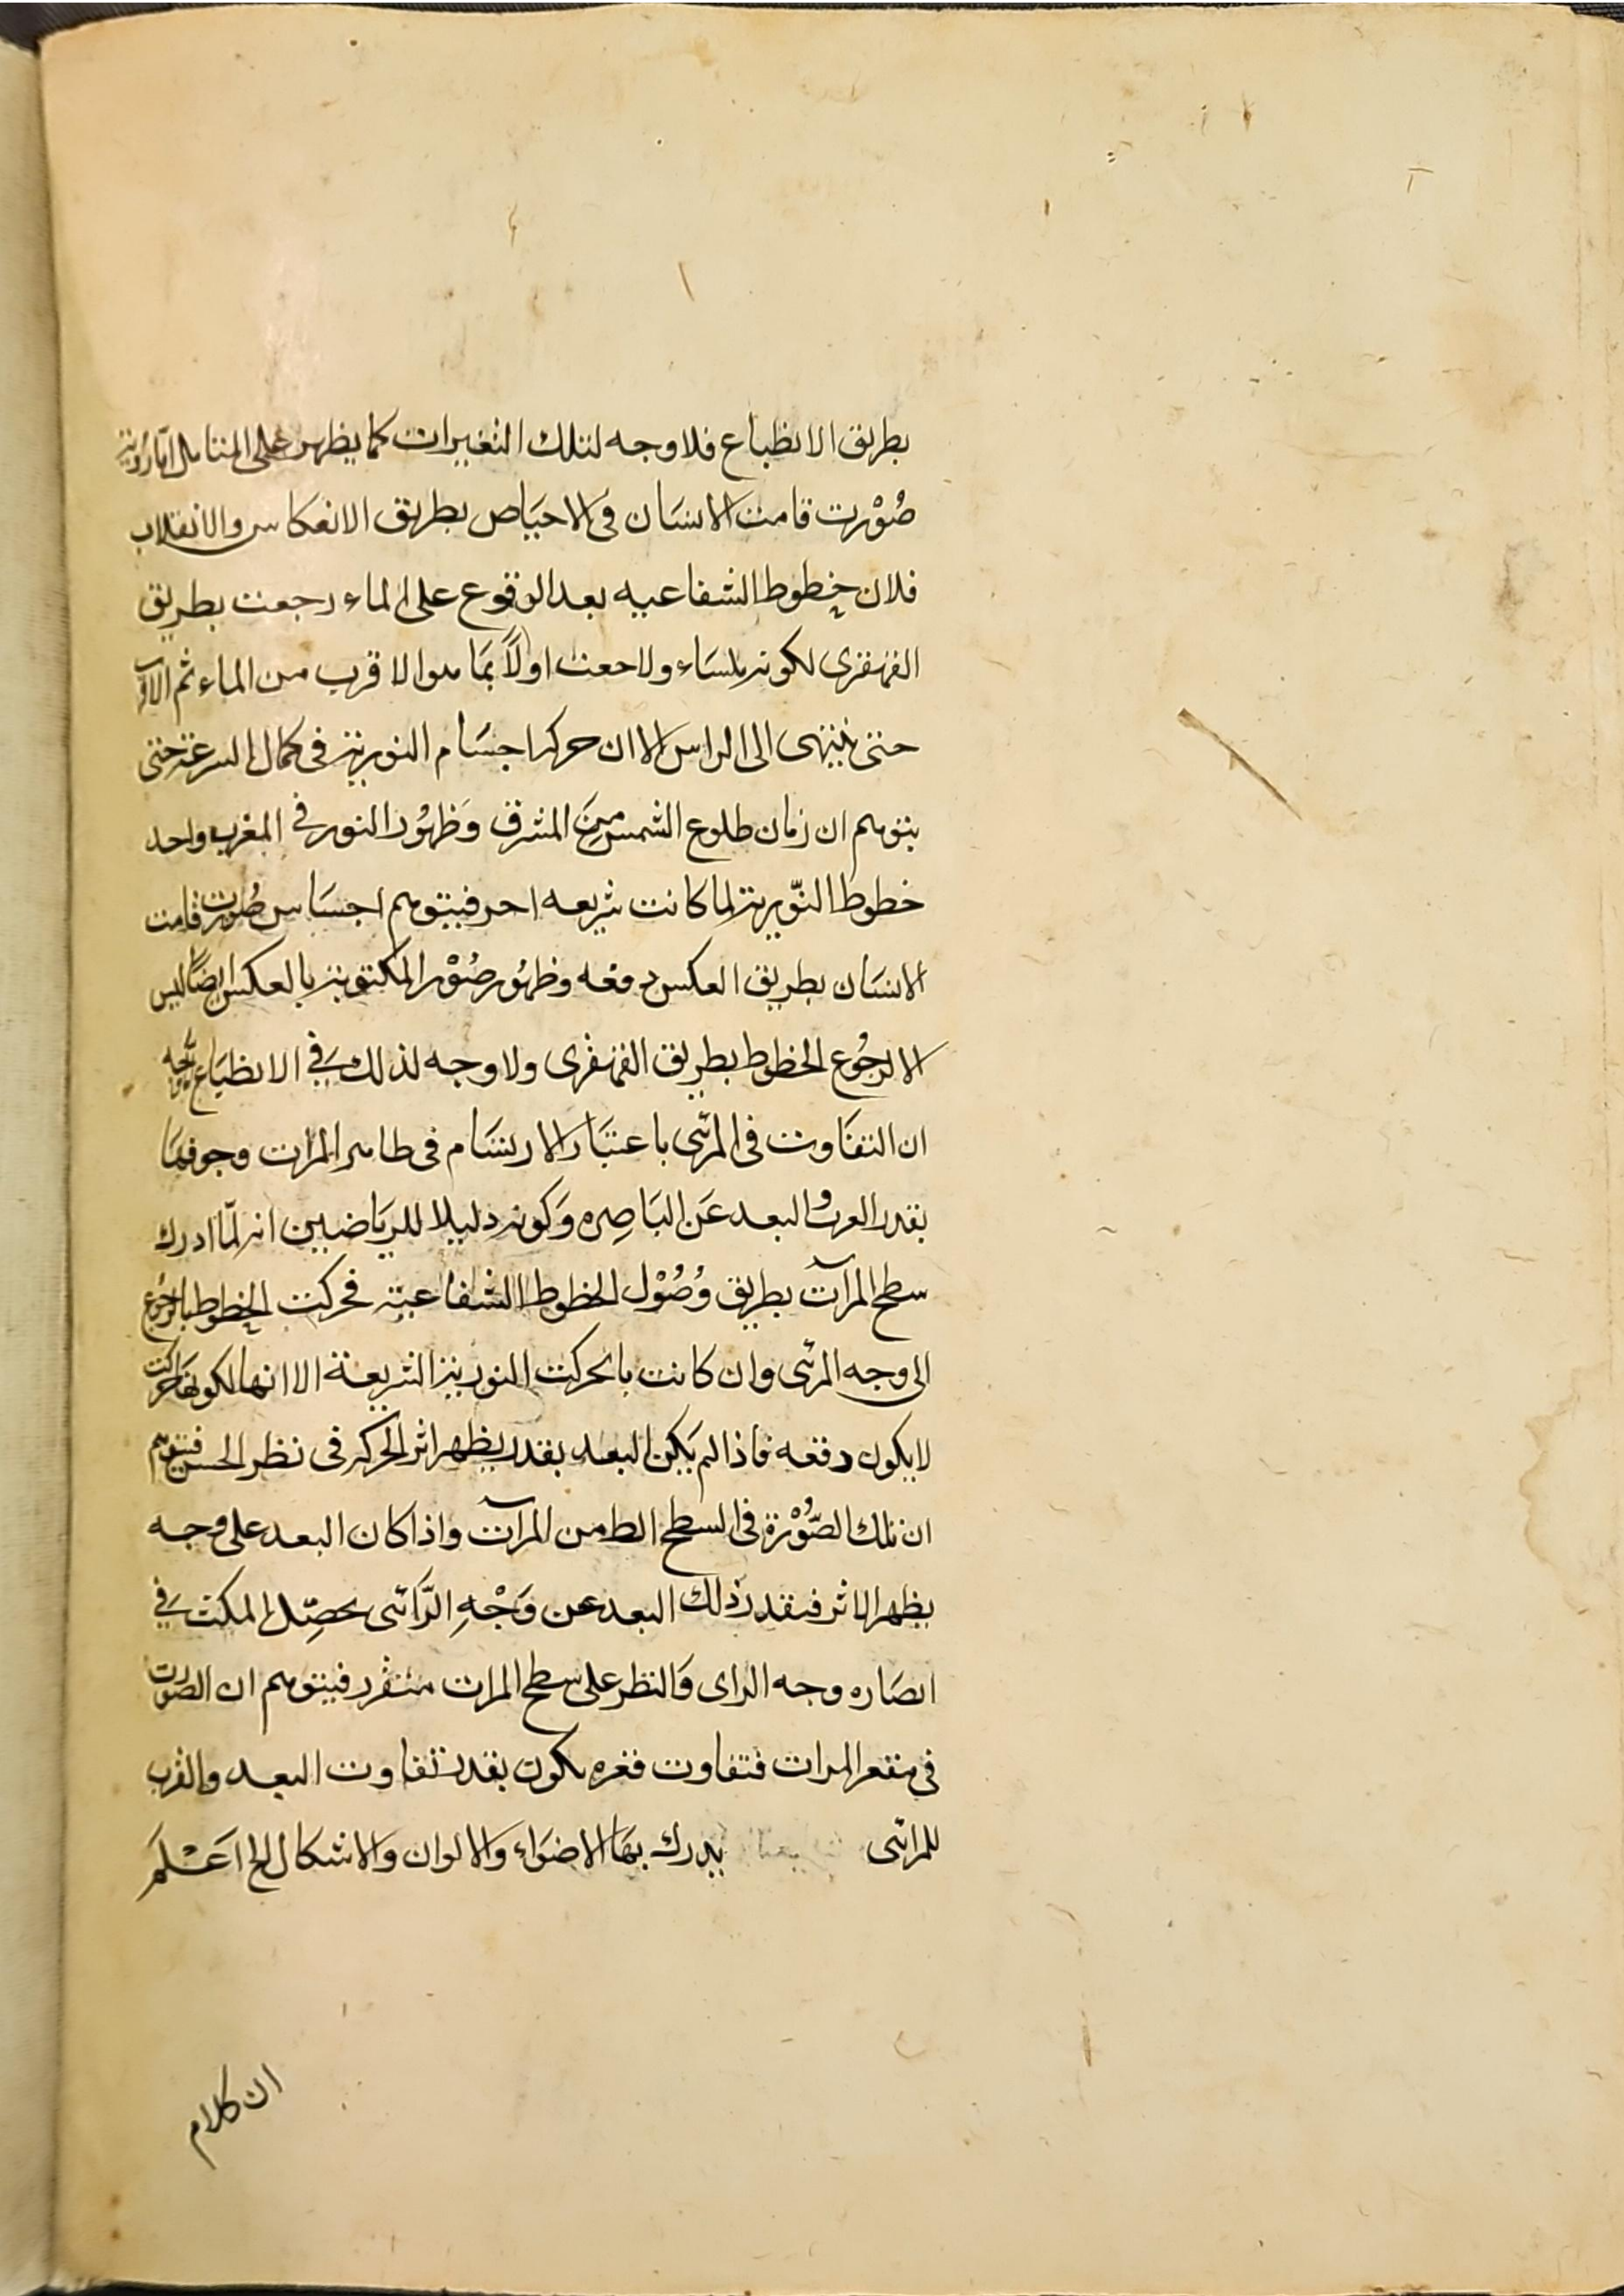 بطريق الانظباع فلا وجه لتلك التغييرات كما يظهر على المتامل اما روية
صُوْرت قامت الانسَان فى الاحيَاص بطريق الانعكاس والانقلاب
فلان خطوط الشفاعيه بعد الوقوع على الماء رجعت بطريق
القهقرى لكونه ملسَاء ولاحعت اولاً بمَا هوا لا قرب من الماء ثم الاقرب
حتى ينتهى الى الراس الا ان حركه اجسَام النورية فى كمال السرعة حتى
يتوهم ان زمان طلوع الشمس مِنَ المشرق وَظهُور النور فى المغرب واحد
خطوط النّويرية لما كانت شريعه احر فيتوهم احسَاس صُورت قامت
الانسَان بطريق العكس دفعه وظهُور صُوْر المكتوبة بالعكس ايضًا ليس
الا لرجُوع الخطوط بطريق القهقرى ولا وجه لذلك فى الانظبَاع
ان التفَاوت فى المرئى باعتبَار الارتسَام فى ظاهر المرات وجوفهَا
بقدر القرب والبعد عَن البَاصِره وَكونه دليلا للريَاضيين انه لمّا ادرك
سطح المرآت بطريق وُصُوْل الخطوط الشفاعية فحركت الخطوط بالرجوع
الى وجه المرئى وان كانت بالحركت النورية الشريعة الا انها لكونها حركت
لا يكون دفعه فاذا لم يَكن البعد بقدر يظهر اثر الحركه فى نظر الحس فيتوهم
ان تلك الصّوُرْة فى السطح الظ من المرآت واذا كان البعد على وجه
يظهر الاثر فبقدر ذلك البعد عن وَجْهِ الرَّائى يحصِّل المكث فى
ابصَاره وجه الراى وَالنظر على سطح المرات متفرد فيتوهم ان الصورت
فى مقعر المرات فتفاوت قعره يكون بقدر تفاوت البعد والقرب
للمرائى يدرك بهَا الاضوَاء وَالالوان وَالاشكال الخ اَعَـْلَمَ
ان كلام